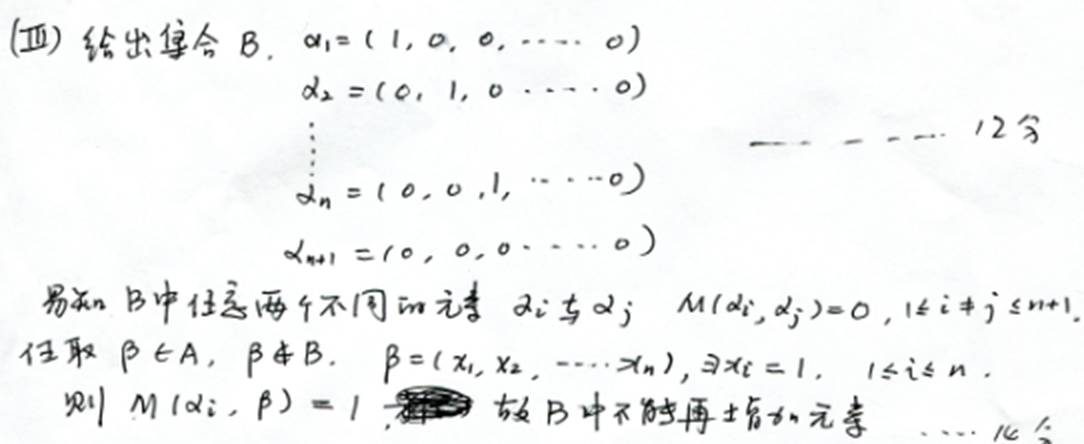 (Ⅲ) 给出集合 B. α₁=(1,0,0,……0)
α₂=(0,1,0……0)
…… 12分
⋮
αₙ=(0,0,1,……0)
αₙ₊₁=(0,0,0……0)
易知 B中任意两个不同的元素 αi与αj M(αi,αj)=0, 1≤i≠j≤n+1.
任取 β∈A, β∉B. β=(x₁,x₂,……xₙ),∃xi=1. 1≤i≤n.
则 M(αi,β)=1, 故B中不能再增加元素
…… 14分